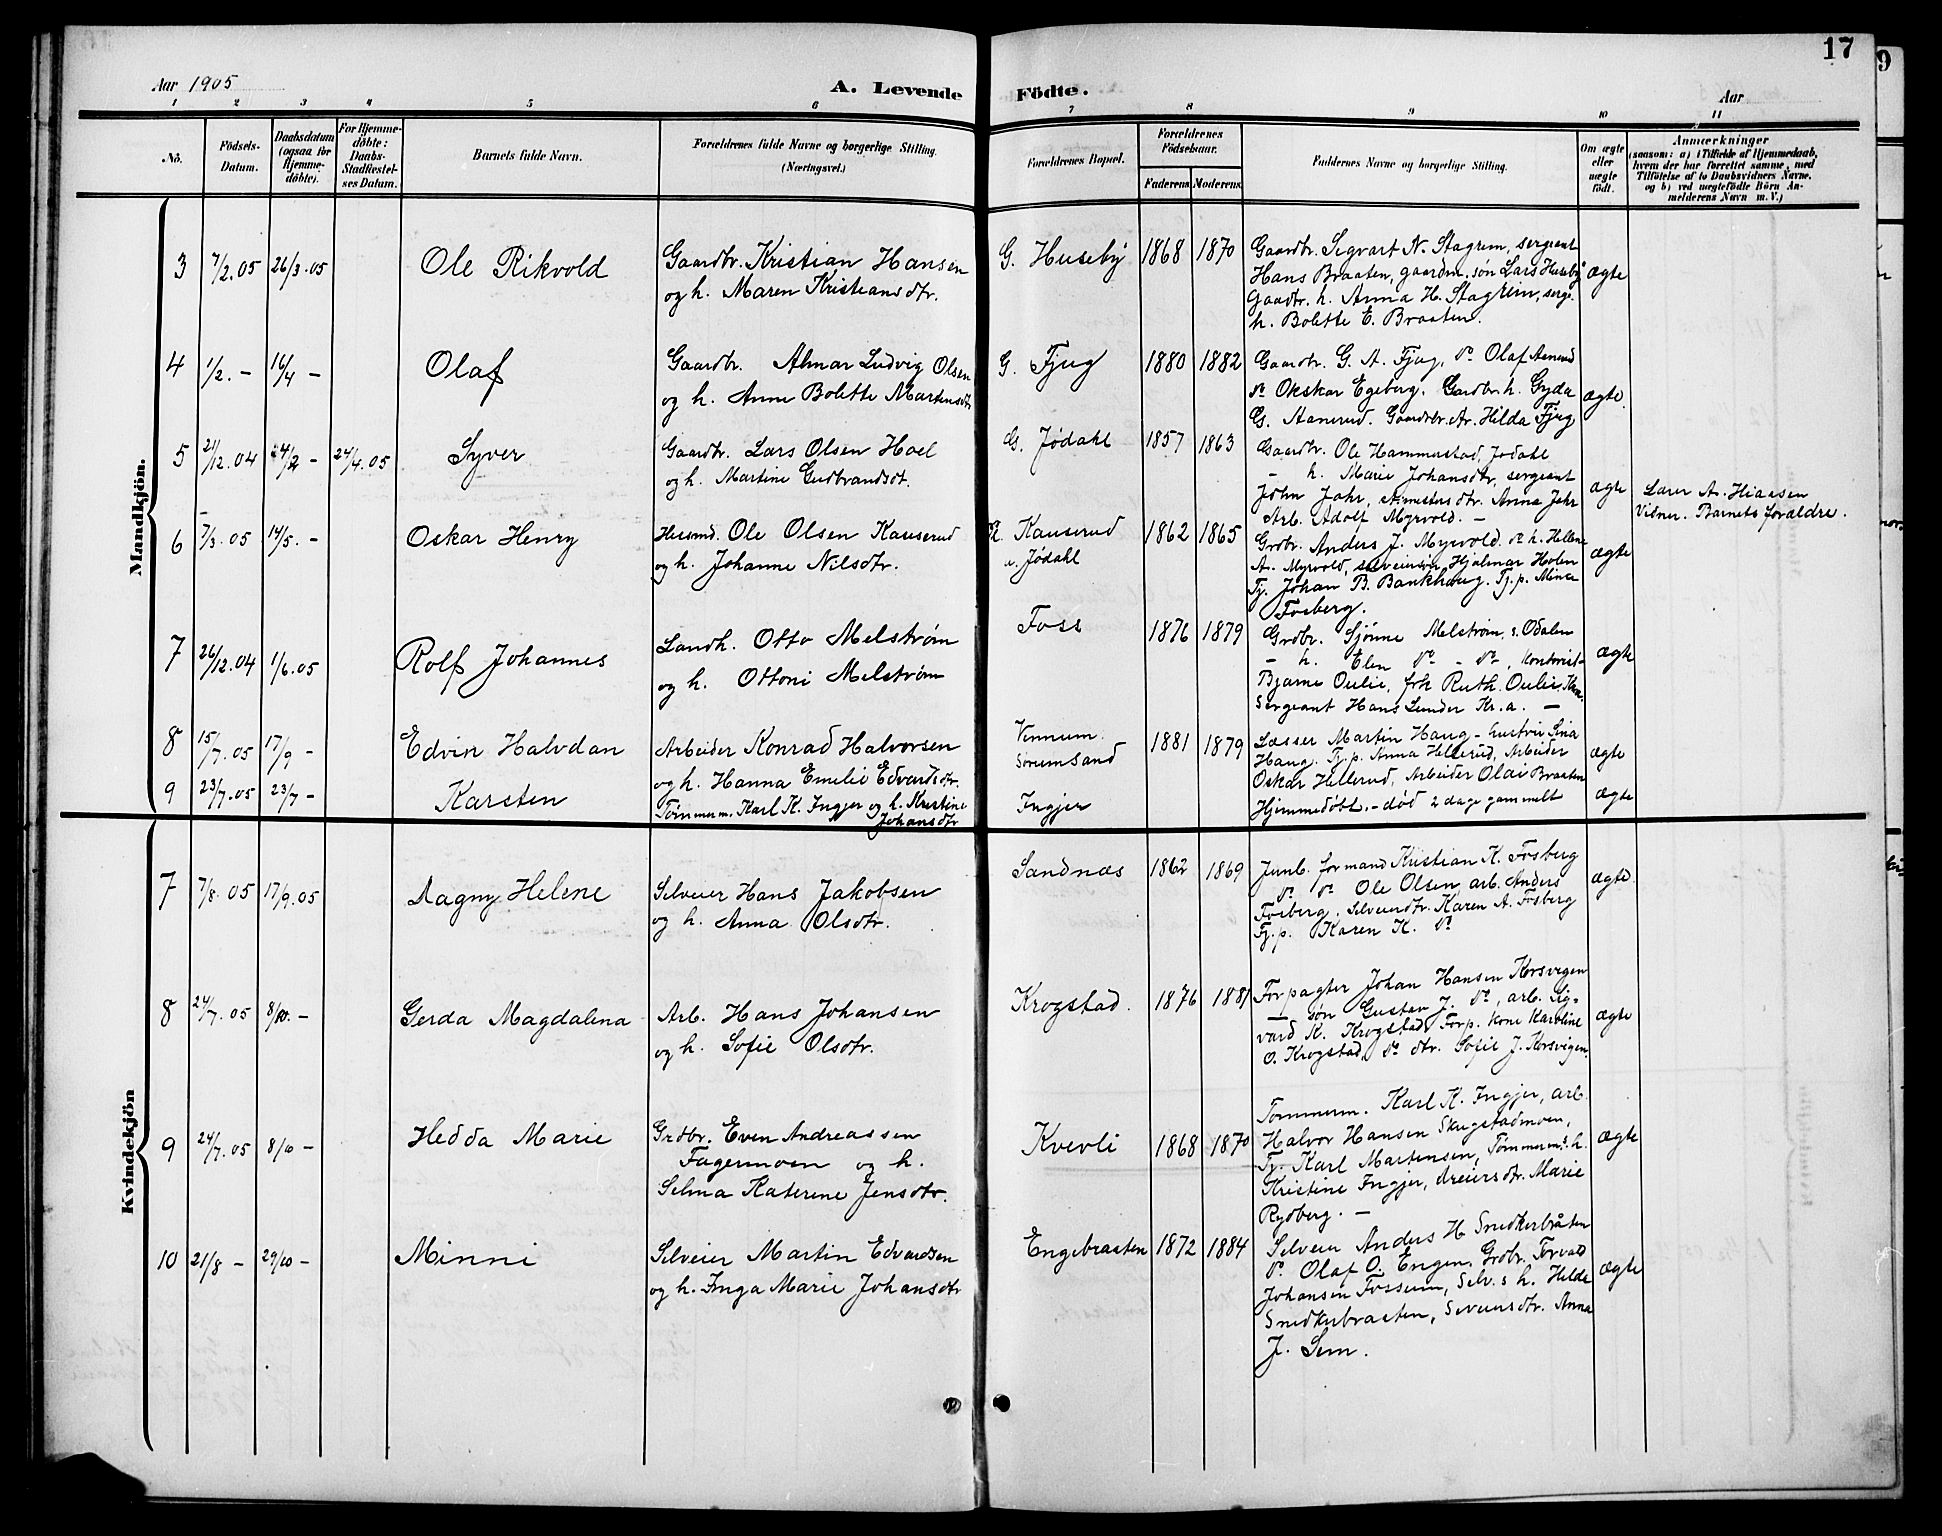 17
9
Aar 1905
A. Levende Födte.
Aar
1 2 3 4 5 6 7 8 9 10 11
No.
Födsels-Datum.
Daabsdatum (ogsaa for Hjemme-döbte).
For Hjemme-döbte: Daabs-Stadfæstel-ses Datum.
Barnets fulde Navn.
Forældrenes fulde Navne og borgerlige Stilling. (Næringsvei.)
Forældrenes Bopæl.
Forældrenes Födselsaar.
Faderens Moderens
Faddernes Navne og borgerlige Stilling.
Om ægte eller uægte födt.
Anmærkninger
(saasom: a) i Tilfælde af Hjemmedaab,
hvem der har forrettet samme, med
Tilföielse af to Daabsvidners Navne,
og b) ved uægtefödte Börn An-
melderens Navn m. V.)
Mandkjön.
3 7/2.05 26/3.05 Ole Rikvold
Gaardbr. Kristian Hansen
og h. Maren Kristiansdtr.
G. Huseby 1868 1870
Gaardbr. Segvart N. Stagrem, sergeant
Hans Braaten, gaardm. søn Lars Huseby
Gaadbr. h. Anna H. Stagrem, serg.
h. Bolette E. Braaten.
ægte
4 1/2. - 16/4 - Olaf
Gaardbr. Almar Ludvig Olsen
og h. Anne Bolette Martensdtr
G. Fjug 1880 1882
Gaardbr. G. A. Fjug, do Olaf Aanerud
do Okskar Egeberg. Gardbr. h. Gyda
G. Aanerud. Gaardbr. dtr. Hilda Fjug
ægte.
5 21/12.04 24/2 - 24/4.05 Syver
Gaardbr. Lars Olsen Hoel
og h. Martine Gudbrandsdt.
G. Jødahl 1857 1863
Gaardbr. Ole Hammerstad, Jødahl
- h. Marie Johansdtr, sergeant
John Jahr, dtr. Anna Jahr
Arb. Adolf Myrvold. -
ægte
Lærer A. Hiaasen
Vidner. Barnets forældre.
6 7/3.05 14/5. - Oskar Henry
Husmd. Ole Olsen Kauserud
og h. Johanne Nilsdtr.
Kauserud
u. Jødahl
1862 1865
Grdbr. Anders J. Myrvold. do h. Hellene
A. Myrvold, selveiersön Hjalmar Holen
Tj. Johan B. Bankhaug. Tj. p. Mina
Fosberg.
ægte
7 26/12.04 1/6.05 Rolf Johannes
Landh. Otto Melstrøm
og h. Ottoni Melstrøm
Foss 1876 1879
Grdbr. Sjönne Melstrøm, s. Odalen
- h. Elen do - do, kontorist
Bjarne Oulie, frk Ruth Oulie,
Sergeant Hans Lunder Kr.a. -
ægte
8 15/7.05 17/9 - Edvin Halvdan
Arbeider Konrad Halvorsen
og h. Hanna Emelie Edvardsdtr.
Vennum.
Sørumsand
1881 1879
Læsser Martin Haug - hustru Lina
Haug. Tj. p. Anna Hellerud, Arbeider
Oskar Hellerud, Arbeider Olai Braaten
ægte
9 23/7.05 23/7 - Karsten
Tömmerm. Karl K. Ingjer og h. Kristine
Johansdtr
Ingjer
Hjemmedöbt. - død 2 dage gammelt
ægte
Kvindekjön
7 7/8.05 17/9.05 Dagny Helene
Selveier Hans Jakobsen
og h. Anna Olsdtr.
Sandnæs 1862 1869
Jernb. formand Kristian K. Fosberg
do do Ole Olsen, arb. Anders
Fosberg. Selveierdtr. Karen A. Fosberg
Tj.p. Karen K. do
ægte.
8 24/7.05 8/10. - Gerda Magdalena
Arb. Hans Johansen
og h. Sofie Olsdtr.
Krogstad. 1876 1881
Forpagter Johan Hansen Korsvegen
- søn Gustav J. do, arb. Sig-
vard K. Krogstad, Forp. kone Karoline
O. Krogstad, do dtr. Sofie J. Korsvigen.
ægte
9 24/7.05 8/10 - Hedda Marie
Grdbr. Even Andreassen
Fagermoen og h.
Selma Katerene Jensdtr.
Kvevli 1868 1870
Tømmerm. Karl K. Ingjer, arb.
Halvor Hansen Skugstadmoen,
Tj. Karl Martensen, Tømmerms. h.
Kristine Ingjer, dreiersdtr. Marie
Rydberg. -
ægte
10 21/8 - 29/10 - Minni
Selveier Martin Edvardsen
og h. Inga Marie Johansdtr
Engebraaten 1872 1884
Selveier Anders H Snedkerbråten
do Olaf O. Engen, Grdbr. Torvald
Johansen Fossum, Selv.s h. Helda
Snedkerbraaten, Seveiersdtr. Anna
J. Sem.
ægte